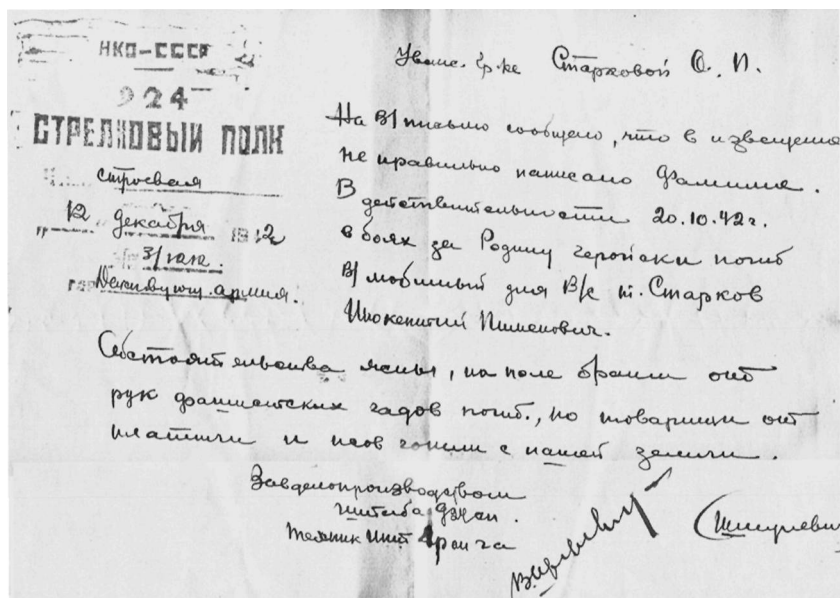 НКО-СССР
924
СТРЕЛКОВЫЙ ПОЛК
строевая
"12" декабря 1942
Действующ. армия.
Уваж. Гр-ке Старковой О. П.
На В/письмо сообщаю, что в извещение
не правильно написано фамилия.
В действительности 20.10.42 г.
в боях за Родину геройски погиб
В/любимый для В/с т. Старков
Инокентий Пименович.
Обстоятельства ясны, на поле брани от
рук фашистских гадов погиб, но товарищи от
платили и псов гоним с нашей земли.
Завделопроизводством
штаба
Техник Инт 1 ранга